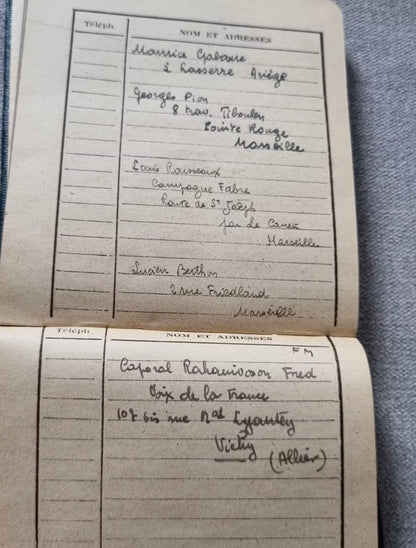 Téléph.
NOM ET ADRESSES
Maurice Gabarre
à Lasserre Ariège
Georges Pion
8 trav. Tiboulen
Pointe Rouge
Marseille
Louis Rousseaux
Campagne Fabre
Route de St Joseph
par le Canet
Marseille
Lucien Berthon
2 rue Friedland
Marseille
Téléph.
NOM ET ADRESSES
FM
Caporal Rahanivoson Fred
Voix de la France
107 bis rue Mal Lyautey
Vichy
(Allier)